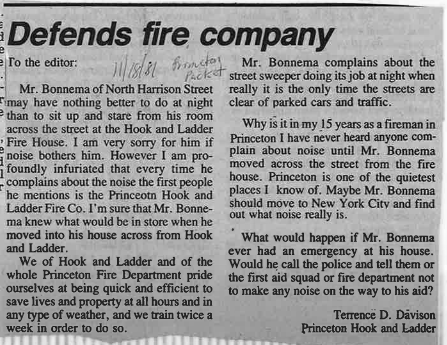 Defends fire company
To the editor:
11/18/81 Princeton
Packet
Mr. Bonnema of North Harrison Street
may have nothing better to do at night
than to sit up and stare from his room
across the street at the Hook and Ladder
Fire House. I am very sorry for him if
noise bothers him. However I am pro-
foundly infuriated that every time he
complains about the noise the first people
he mentions is the Princeotn Hook and
Ladder Fire Co. I'm sure that Mr. Bonne-
ma knew what would be in store when he
moved into his house across from Hook
and Ladder.
We of Hook and Ladder and of the
whole Princeton Fire Department pride
ourselves at being quick and efficient to
save lives and property at all hours and in
any type of weather, and we train twice a
week in order to do so.
Mr. Bonnema complains about the
street sweeper doing its job at night when
really it is the only time the streets are
clear of parked cars and traffic.
Why is it in my 15 years as a fireman in
Princeton I have never heard anyone com-
plain about noise until Mr. Bonnema
moved across the street from the fire
house. Princeton is one of the quietest
places I know of. Maybe Mr. Bonnema
should move to New York City and find
out what noise really is.
What would happen if Mr. Bonnema
ever had an emergency at his house.
Would he call the police and tell them or
the first aid squad or fire department not
to make any noise on the way to his aid?
Terrence D. Davison
Princeton Hook and Ladder